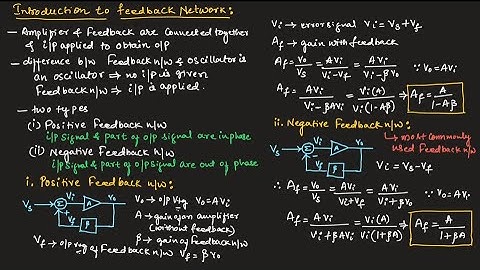 Introduction to feedback Network:
— Amplifier & Feedback are connected together
& i/p applied to obtain o/p
— difference b/w Feedback n/w & oscillator is
an oscillator ⇒ no i/p is given
Feedback n/w ⇒ i/p is applied.
— two types
(i) Positive Feedback n/w
i/p signal & part of o/p signal are in phase
(ii) Negative Feedback n/w
i/p signal & part of o/p signal are out of phase
i. Positive Feedback n/w:
Vs Σ Vi A Vo
+
+
Vf β
Vo → o/p Vtg Vo = AVi
A → gain of an amplifier
(without feedback)
β → gain of Feedback n/w
Vf → o/p vtg of Feedback n/w Vf = βVo
Vi → error signal Vi = Vs + Vf
Af → gain with feedback
Af = Vo/Vs = AVi/(Vi − Vf) = AVi/(Vi − βVo) ∵ Vo = AVi
Af = AVi/(Vi − βAVi) = Vi(A)/Vi(1 − Aβ) ⇒ Af = A/(1 − Aβ)
ii. Negative Feedback n/w:
→ most commonly
used Feedback n/w
Vs Σ Vi A Vo
+
−
Vf β
Vi = Vs − Vf
∴ Af = Vo/Vs = AVi/(Vi + Vf) = AVi/(Vi + βVo) ∵ Vo = AVi
Af = AVi/(Vi + βAVi) = Vi(A)/Vi(1 + βA) ⇒ Af = A/(1 + βA)